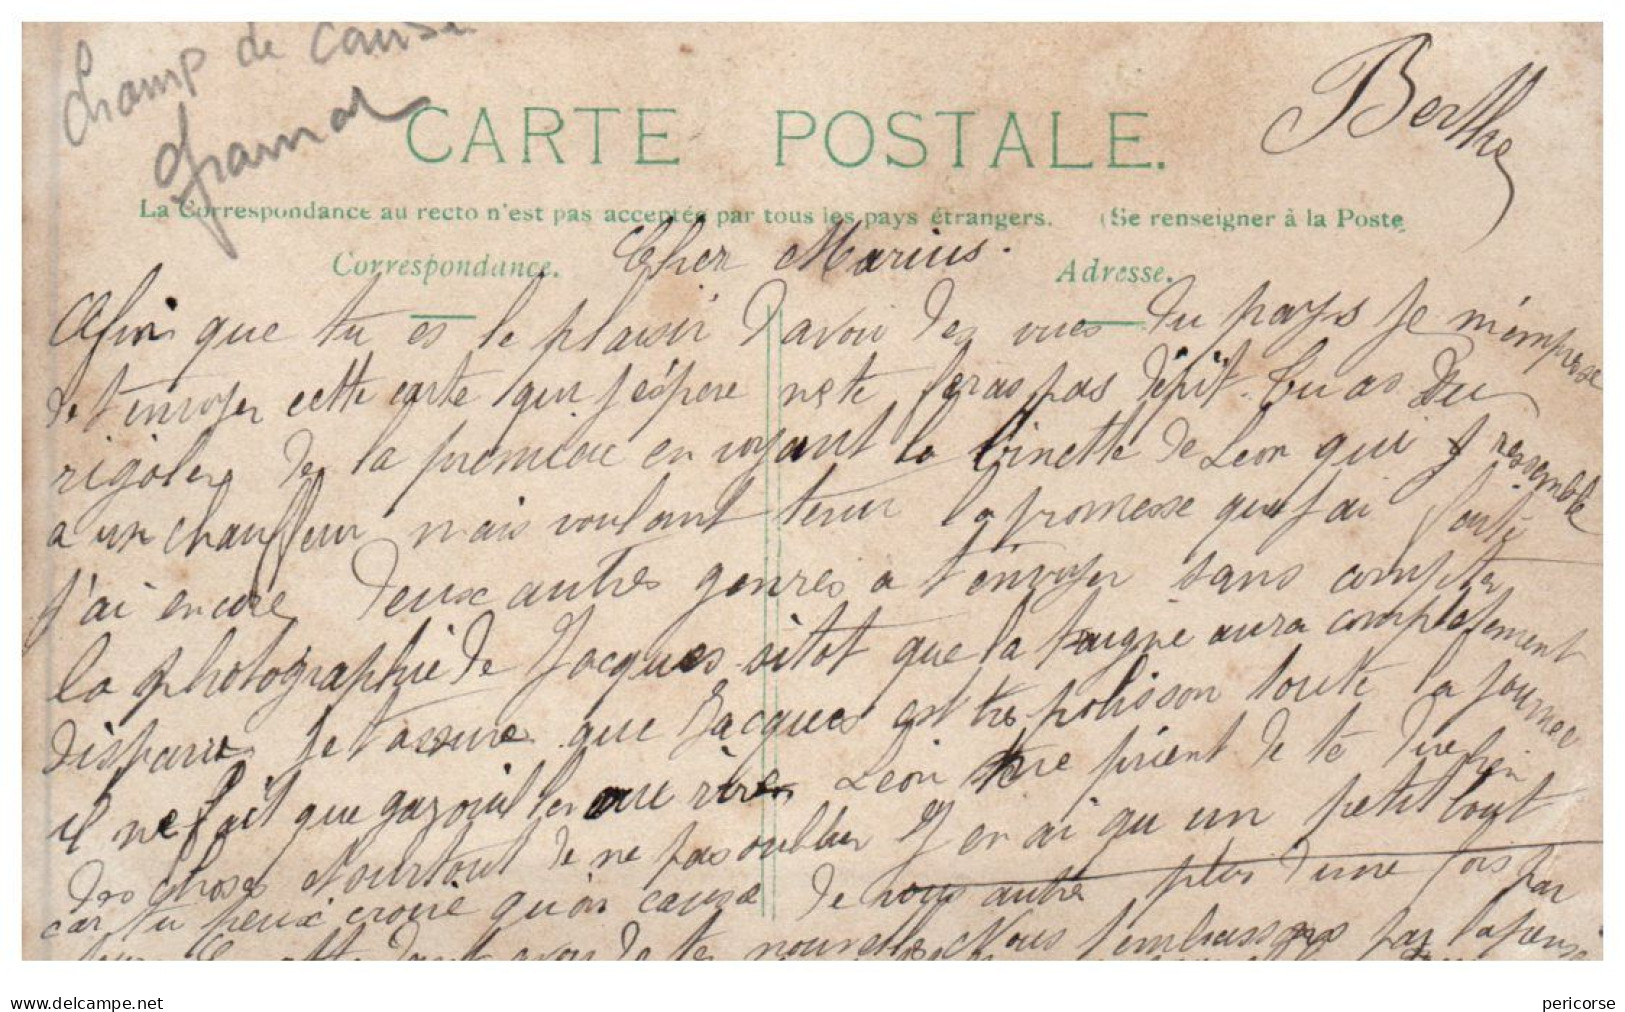 Champ de course
Gramat
Berthe
CARTE POSTALE.
La Correspondance au recto n'est pas acceptée par tous les pays étrangers. (Se renseigner à la Poste
Correspondance.
Adresse.
Cher Marius.
Afin que tu es le plaisir d'avoir des vues du pays je m'empresse
de t'envoyer cette carte qui j'espère ne te feras pas dépit. Tu as du
rigoler de la première en voyant la binette de Léon qui ressemble
a un chauffeur mais voulant tenir la promesse que j'ai faite
j'ai encore deux autres genres a t'envoyer sans compter
la photographie de Jacques sitot que la taigne aura completement
disparue je t'assure que Jacques est tres polisson toute la journee
il ne fait que gazouiller ou rire Léon me prient de te dire bien
des choses surtout de ne pas oublier J en ai qu un petit bout
car tu peux croire qu'on cause de nous autre plus d'une fois par
jour avoir de tes nouvelles Nous t'embrassons par la pensé
delcampe.net
pericorse